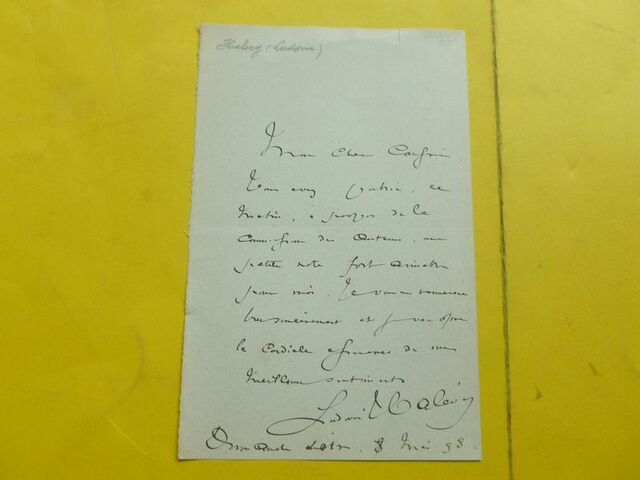 Halévy (Ludovic)
Mon cher Confrère
Vous avez publié, ce
matin, à propos de la
Commission des Auteurs, une
petite note fort aimable
pour moi. Je vous en remercie
très sincèrement et je vous offre
la cordiale assurance de mes
meilleurs sentiments
Ludovic Halévy
Dimanche soir. 8 Mai 98.